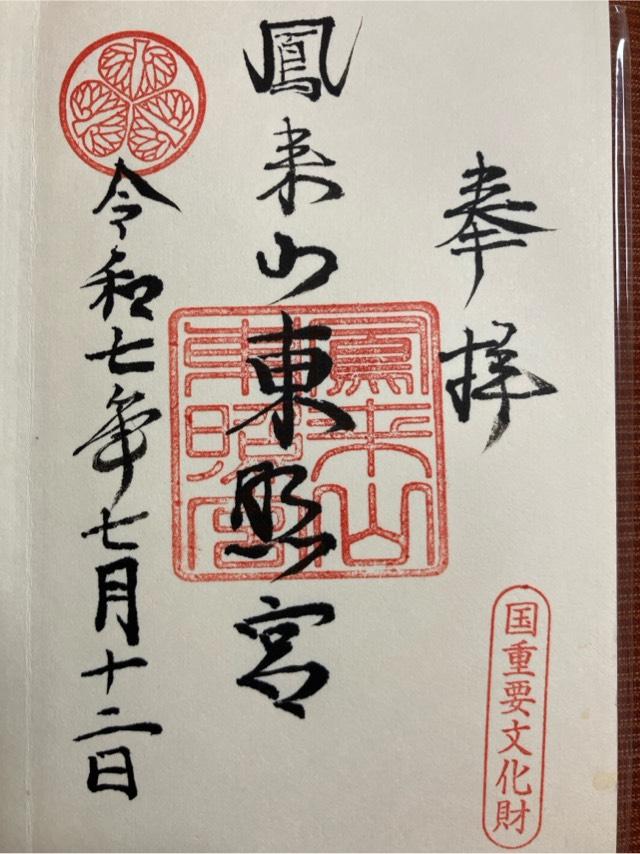 奉拝
鳳来山東照宮
鳳来山
東照宮
令和七年七月十二日
国重要文化財